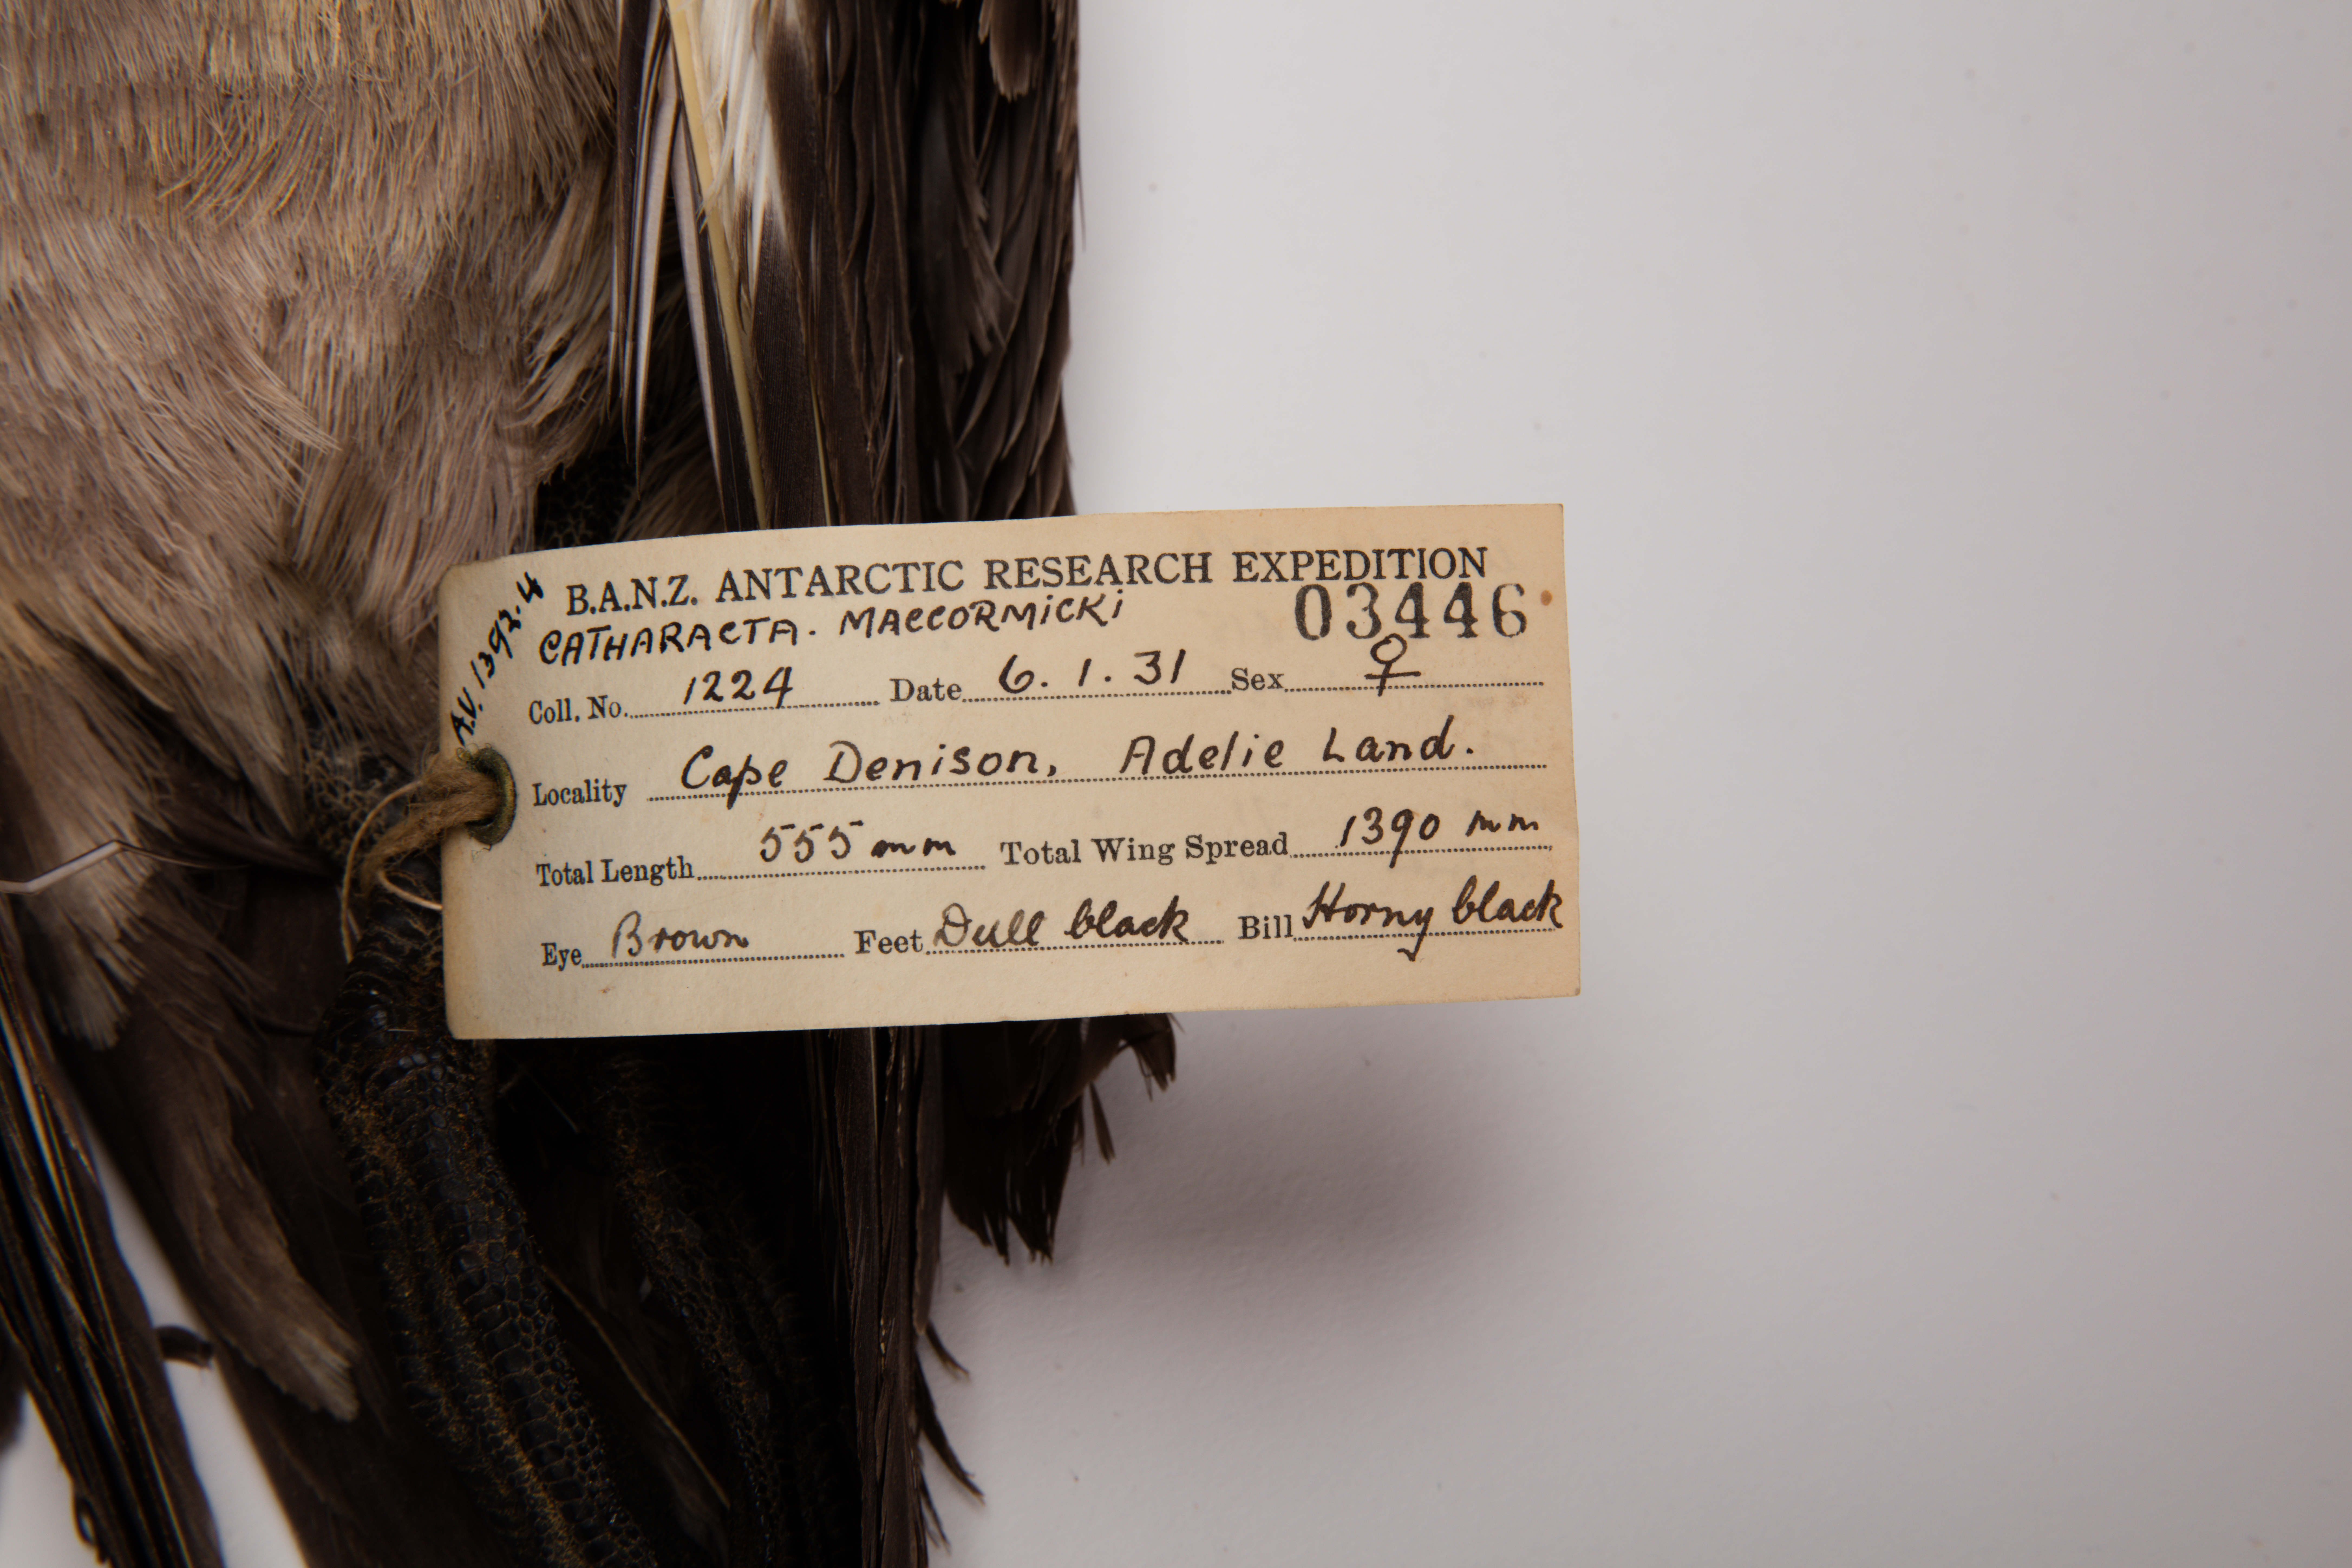 B.A.N.Z. ANTARCTIC RESEARCH EXPEDITION
CATHARACTA. MACCORMICKI 03446
Coll. No. 1224 Date 6.1.31 Sex ♀
Locality Cape Denison, Adelie Land.
Total Length 555 mm Total Wing Spread 1390 mm
Eye Brown Feet Dull black Bill Horny black
AV.1392.4